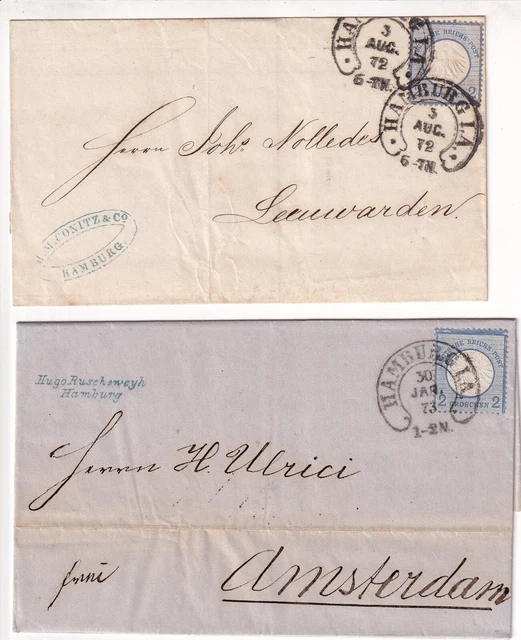 HAMBURG I.A.
3
AUG.
72
6-7N.
HAMBURG I.A.
3
AUG.
72
6-7N.
REICHS-POST
2
Herrn Johs Nolledes
Leeuwarden.
M. CONITZ & Co
HAMBURG.
HAMBURG I.A.
30
JAN.
73
1-2N.
REICHS-POST
2 GROSCHEN 2
Hugo Ruscheweyh
Hamburg
Herrn H. Ulrici
frei
Amsterdam